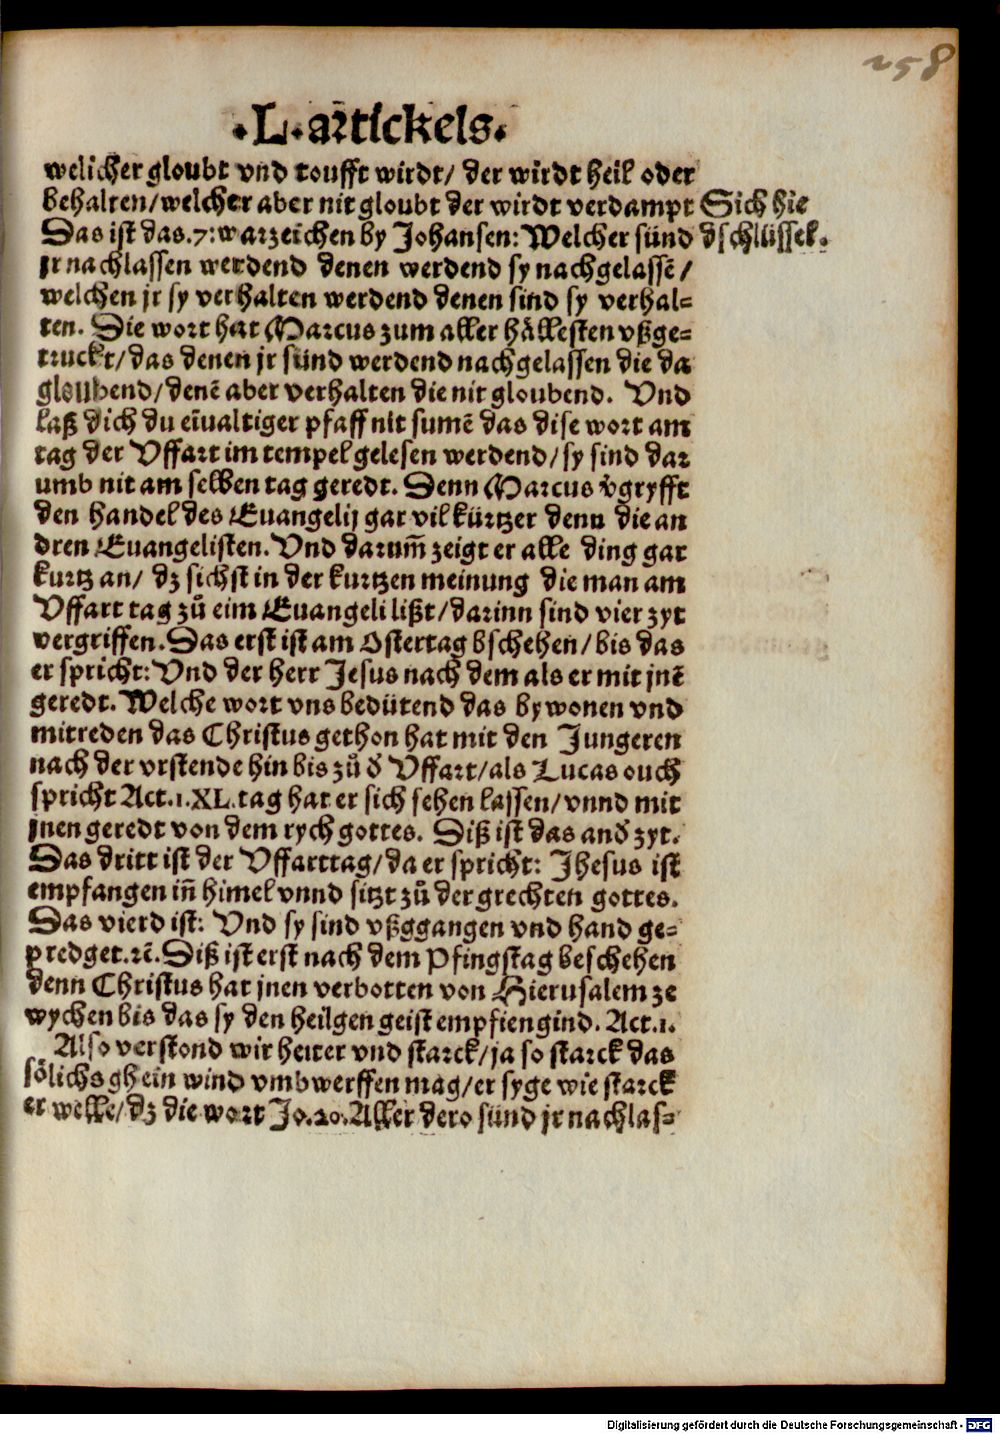 258
·L·artickels·
welicher gloubt vnd toufft wirdt/ der wirdt heil oder
behalten/welcher aber nit gloubt der wirdt verdampt
Sich hie
dschlüssel.
Das ist das.7:warzeichen by Johansen: Welcher sünd
jr nachlassen werdend denen werdend sy nachgelassē/
welchen jr sy verhalten werdend denen sind sy verhal-
ten. Die wort hat Marcus zum aller hållesten vßge-
truckt/das denen jr sünd werdend nachgelassen die da
gloubend/denē aber verhalten die nit gloubend. Vnd
laß dich du eīualtiger pfaff nit sumē das dise wort am
tag der Vffart im tempel gelesen werdend/sy sind dar
umb nit am selben tag geredt. Denn Marcus v̄gryfft
den handel des Euangelij gar vil kürtzer denn die an
dren Euangelisten. Vnd darum̄ zeigt er alle ding gar
kurtz an/ dz sichst in der kurtzen meinung die man am
Vffart tag zů eim Euangeli lißt/darinn sind vier zyt
vergriffen. Das erst ist am Ostertag bschehen/bis das
er spricht: Vnd der herr Jesus nach dem als er mit jnē
geredt. Welche wort vns bedütend das bywonen vnd
mitreden das Christus gethon hat mit den Jungeren
nach der vrstende hin bis zů d̄ Vffart/als Lucas ouch
spricht Act.1.XL.tag hat er sich sehen lassen/vnnd mit
jnen geredt von dem rych gottes. Diß ist das and̄ zyt.
Das dritt ist der Vffarttag/da er spricht: Jhesus ist
empfangen in̄ himel vnnd sitzt zů der grechten gottes.
Das vierd ist: Vnd sy sind vßggangen vnd hand ge-
predget.ꝛc̄. Diß ist erst nach dem Pfingstag beschehen
denn Christus hat jnen verbotten von Hierusalem ze
wychen bis das sy den heilgen geist empfiengind. Act.1.
Also verstond wir heiter vnd starck/ja so starck das
sölichs ghein wind vmbwerffen mag/er syge wie starck
er welle/dz die wort Jo.20. Aller dero sünd jr nachlas-
Digitalisierung gefördert durch die Deutsche Forschungsgemeinschaft - DFG